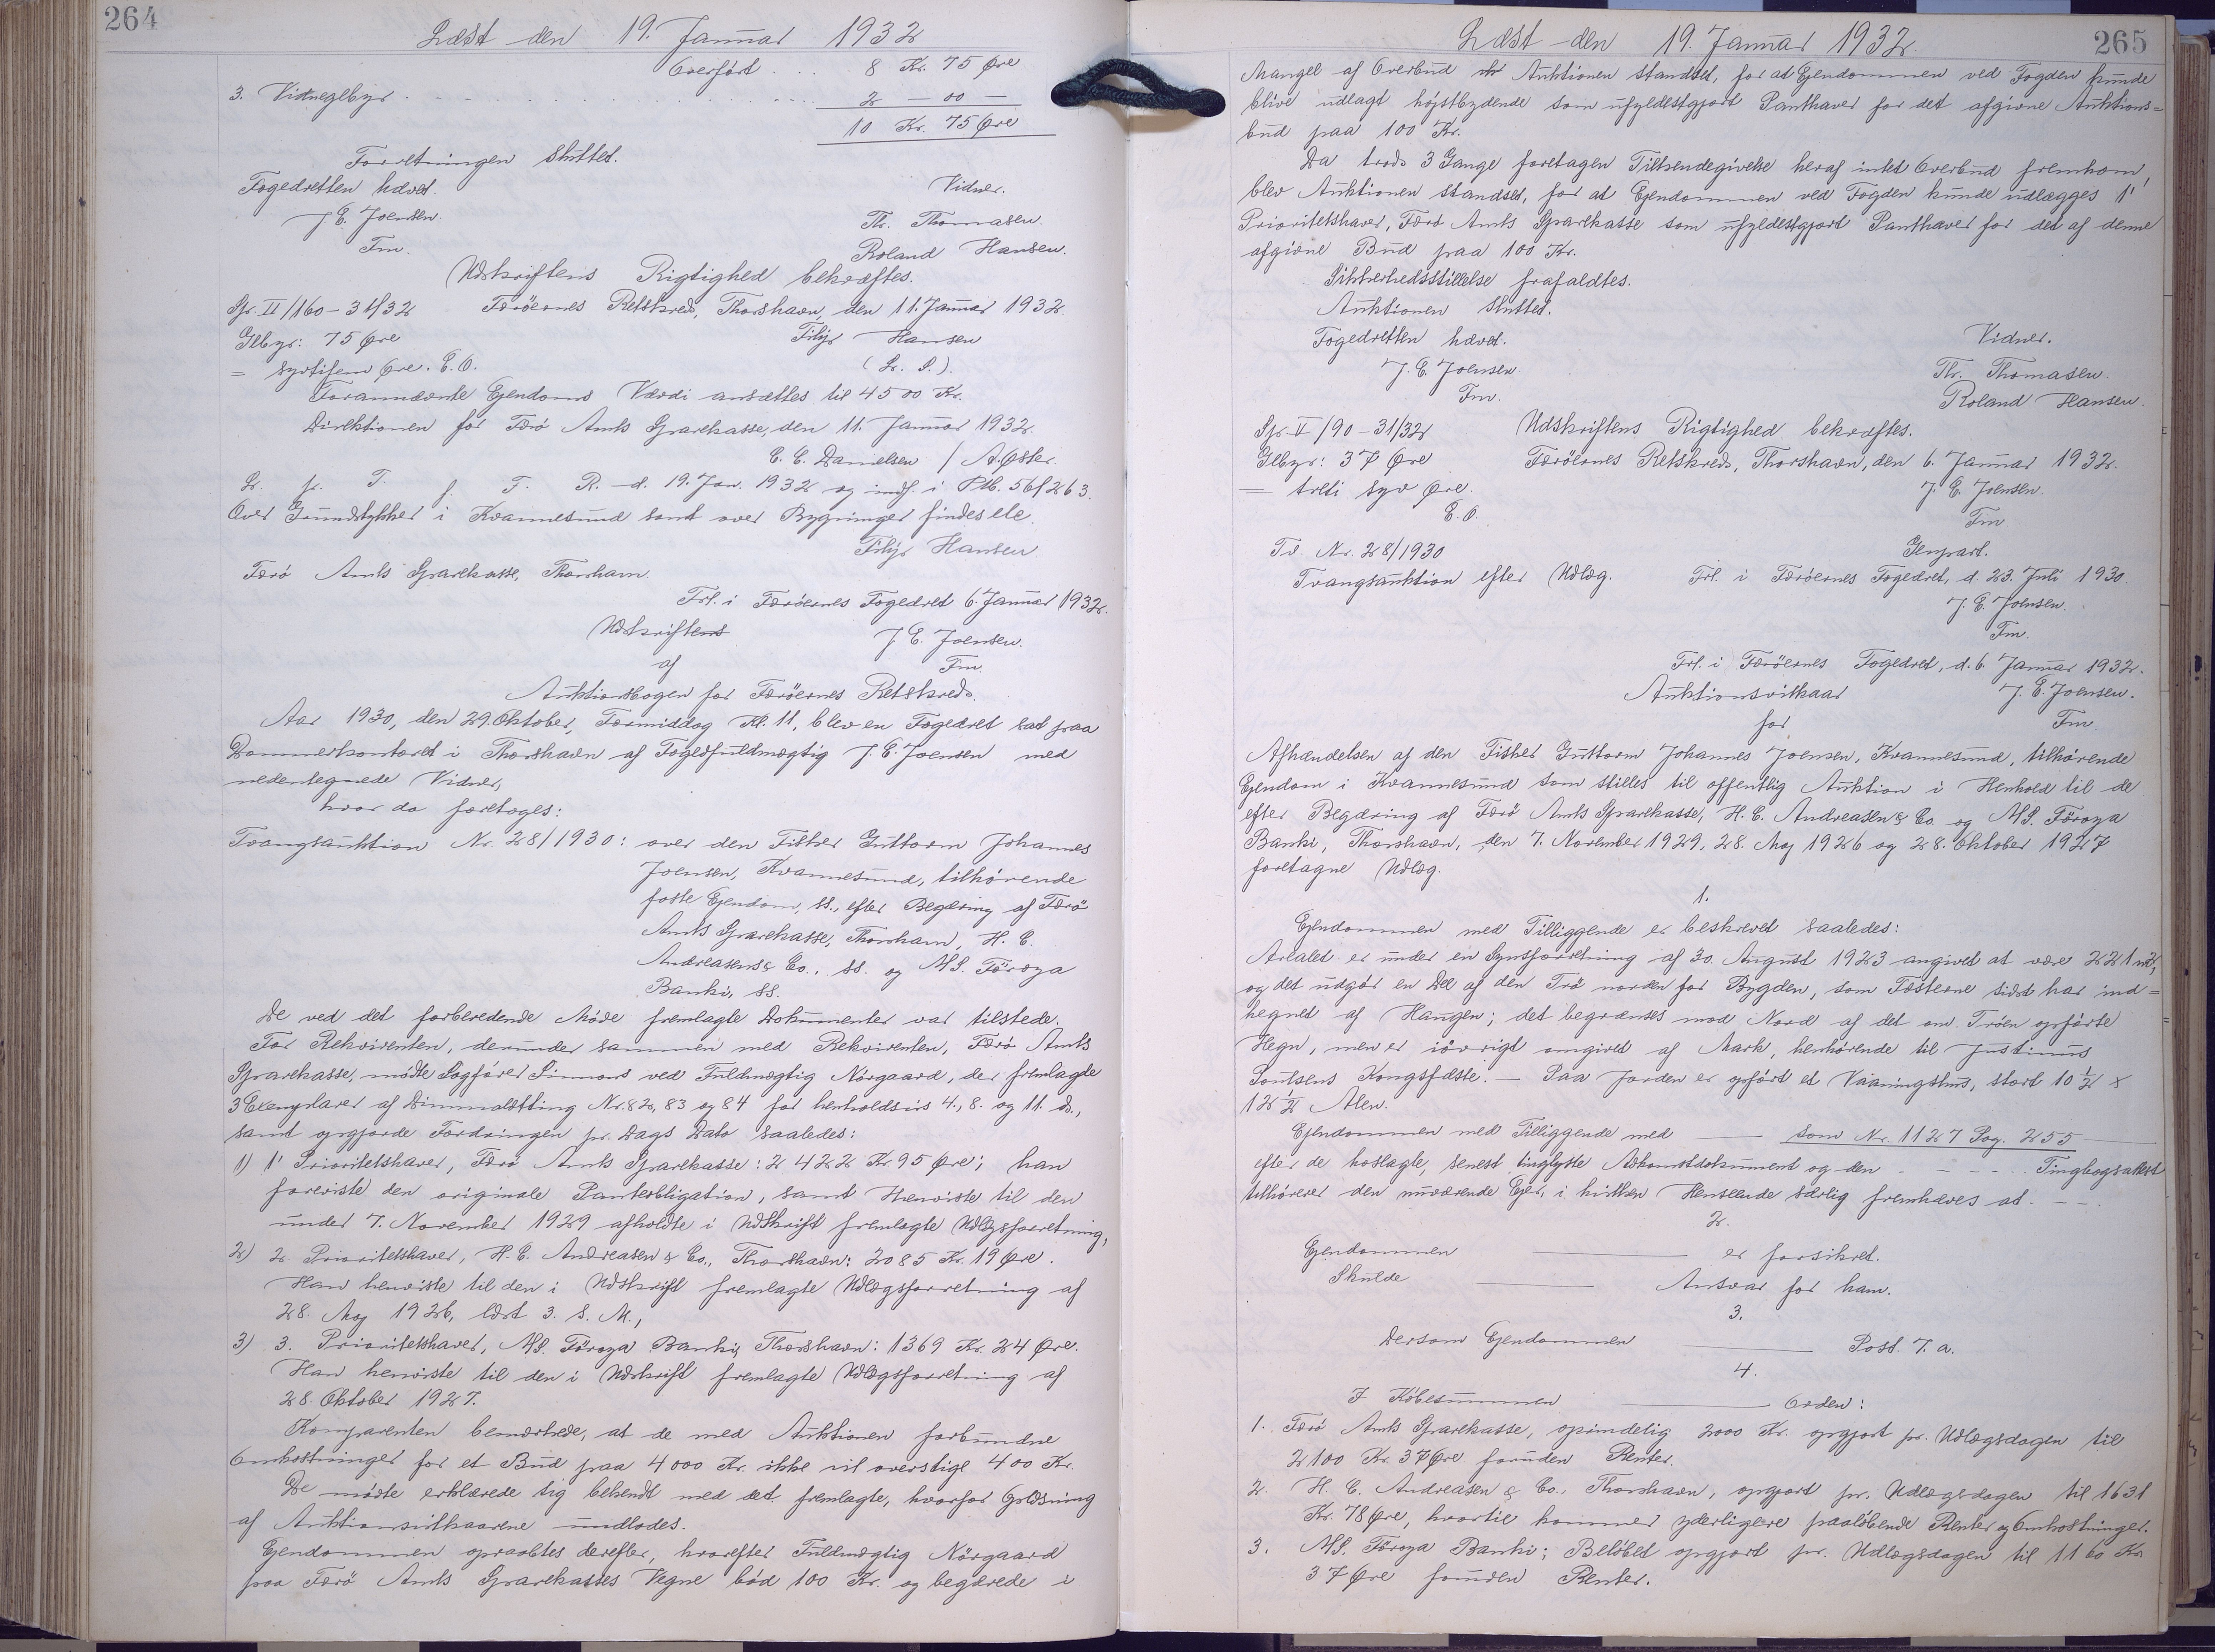 264
Læst den 19. Januar 1932
Overført . . . 8 Kr. 75 Øre
3. Vidnegebyr . . . . . . . . . 2 — 00 —
10 Kr. 75 Øre
Forretningen sluttet.
Fogedretten hævet. Vidner.
J. E. Joensen. Th. Thomasen.
Fm. Roland Hansen.
Udskriftens Rigtighed bekræftes.
Spr. II/160-31/32 Færöernes Retskreds, Thorshavn, den 11. Januar 1932.
Geby̅r: 75 Øre Hansen
= sytifem Øre. E.O. (L. S.).
Forannævnte Ejendoms Værdi ansættes til 4500 Kr.
Direktionen for Færö Amts Sparekasse, den 11. Januar 1932.
C. C. Danielsen / A. Øster.
L. p. T. f. F. R. d. 19. Jan. 1932 og indf. i Ptb. 56/263.
Over Grundstykker i Kvannesund samt over Bygninger findes ele.
Hansen
Færö Amts Sparekasse, Thorshavn.
Frl. i Færöernes Fogedret 6. Januar 1932.
Udskriftens J. E. Joensen.
af Fm.
Auktionsbogen for Færöernes Retskreds.
Aar 1930, den 29. Oktober, Formiddag Kl. 11, blev en Fogedret sat paa
Dommerkontoret i Thorshavn af Fogedfuldmægtig J. E. Joensen med
nedentegnede Vidner,
hvor da foretoges:
Tvangsauktion Nr. 28/1930: over den Fisker Guttorm Johannes
Joensen, Kvannesund, tilhörende
faste Ejendom, ss., efter Begæring af Færö
Amts Sparekasse, Thorshavn, H. C.
Andreasen & Co., ss. og A/S. Föroya
Banki, ss.
De ved det forberedende Møde fremlagte Dokumenter var tilstede.
For Rekvirenten, derunder sammen med Rekvirenten, Færö Amts
Sparekasse, mödte Sagförer Simmons ved Fuldmægtig Nörgaard, der fremlagte
3 Exemplarer af Dimmalætting Nr. 82, 83 og 84 for henholdsvis 4., 8. og 11. ds.,
samt opgjorde Fordringen pr. Dags Dato saaledes:
1) 1' Prioritetshaver, Færö Amts Sparekasse: 2422 Kr. 95 Øre; han
foreviste den originale Panteobligation, samt Henviste til den
under 7. November 1929 afholdte i Udskrift fremlagte Udlægsforretning,
2) 2. Prioritetshaver, H. C. Andreasen & Co., Thorshavn: 2085 Kr. 19 Øre.
Han henviste til den i Udskrift fremlagte Udlægsforretning af
28. Maj 1926, læst 3. s. M.,
3) 3. Prioritetshaver, A/S. Föroya Banki, Thorshavn: 1369 Kr. 24 Øre.
Han henviste til den i Udskrift fremlagte Udlægsforretning af
28. Oktober 1927.
Komparenten bemærkede, at de med Auktionen forbundne
Omkostninger for et Bud paa 4000 Kr. ikke vil overstige 400 Kr.
De mödte erklærede sig bekendt med det fremlagte, hvorfor Oplæsning
af Auktionsvilkaarene undlodes.
Ejendommen opraabtes derefter, hvorefter Fuldmægtig Nörgaard
paa Færö Amts Sparekasses Vegne böd 100 Kr. og begærede i
265
Læst den 19. Januar 1932.
Mangel af Overbud Auktionen standset, for at Ejendommen ved Fogden kunde
blive udlagt højstbydende som ufyldestgjort Panthaver for det afgivne Auktions=
bud paa 100 Kr.
Da trods 3 Gange foretagen Tilkendegivelse heraf intet Overbud fremkom,
blev Auktionen standset, for at Ejendommen ved Fogden kunde udlægges 1'
Prioritetshaver, Færö Amts Sparekasse som ufyldestgjort Panthaver for det af denne
afgivne Bud paa 100 Kr.
Sikkerhedsstillelse frafaldtes.
Auktionen sluttet.
Fogedretten hævet. Vidner.
J. E. Joensen. Th. Thomasen.
Fm. Roland Hansen.
Spr. II/90-31/32 Udskriftens Rigtighed bekræftes.
Gebyr: 37 Øre Færöernes Retskreds, Thorshavn, den 6. Januar 1932.
= treti syv Øre. J. E. Joensen.
E.O. Fm
Tv. Nr. 28/1930 Genpart.
Tvangsauktion efter Udlæg. Frl. i Færöernes Fogedret, d. 23. Juli 1930.
J. E. Joensen.
Fm.
Frl. i Færöernes Fogedret, d. 6. Januar 1932.
Auktionsvilkaar J. E. Joensen.
for Fm.
Afhændelsen af den Fisker Guttorm Johannes Joensen, Kvannesund, tilhörende
Ejendom i Kvannesund som stilles til offentlig Auktion i Henhold til de
efter Begæring af Færö Amts Sparekasse, H. C. Andreasen & Co. og A/S. Föroya
Banki, Thorshavn, den 7. November 1929, 28. Maj 1926 og 28. Oktober 1927
foretagne Udlæg.
1.
Ejendommen med Tilliggende er beskrevet saaledes:
Arealet er under en Synsforretning af 30. August 1923 angivet at være 221 m²,
og det udgör en Del af den Trö norden for Bygden, som Fæsterne sidst har ind=
hegnet af Haugen; det begrænses mod Nord af det om Tröen opförte
Hegn, men er iövrigt omgivet af Mark, henhörende til Justinus
Poulsens Kongsfæste. — Paa Jorden er opfört et Vaaningshus, stort 10 ½ x
12 ½ Alen.
Ejendommen med Tilliggende med — som Nr. 1127 Pag. 255 —
efter de hoslagte, senest tinglyste Adkomstdokument og den - - - - Tingbogsattest
tilhörerer den nuværende Ejer, i hvilken Henseende særlig fremhæves at - - -
2.
Ejendommen — er forsikret.
Skulde — Ansvar for ham.
3.
Dersom Ejendommen — Post. 7. a.
4.
I Köbesummen — Orden:
1. Færö Amts Sparekasse, oprindelig 2000 Kr. opgjort pr. Udlægsdagen til
2100 Kr. 37 Øre foruden Renter.
2. H. C. Andreasen & Co., Thorshavn, opgjort pr. Udlægsdagen til 1631
Kr. 78 Øre, hvortil kommer yderligere paalöbende Renter og Omkostninger.
3. A/S. Föroya Banki; Belöbet opgjort pr. Udlægsdagen til 1160 Kr.
37 Øre foruden Renter.